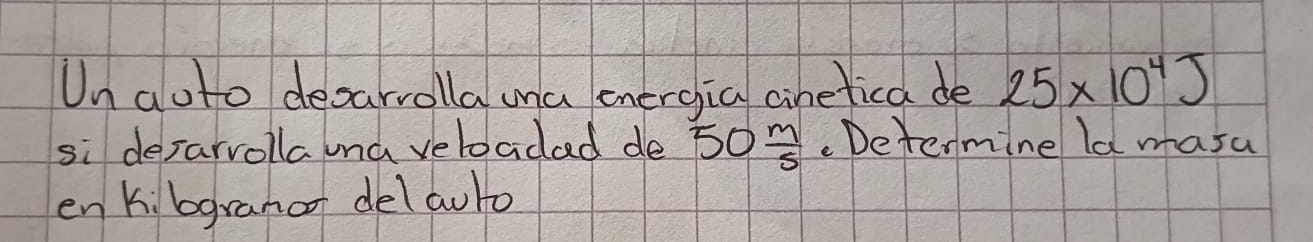 Un auto desarrolla una energia cinetica de 25 x 10⁴ J
si desarrolla una velocidad de 50 m/s. Determine la masa
en Kilogramos del auto